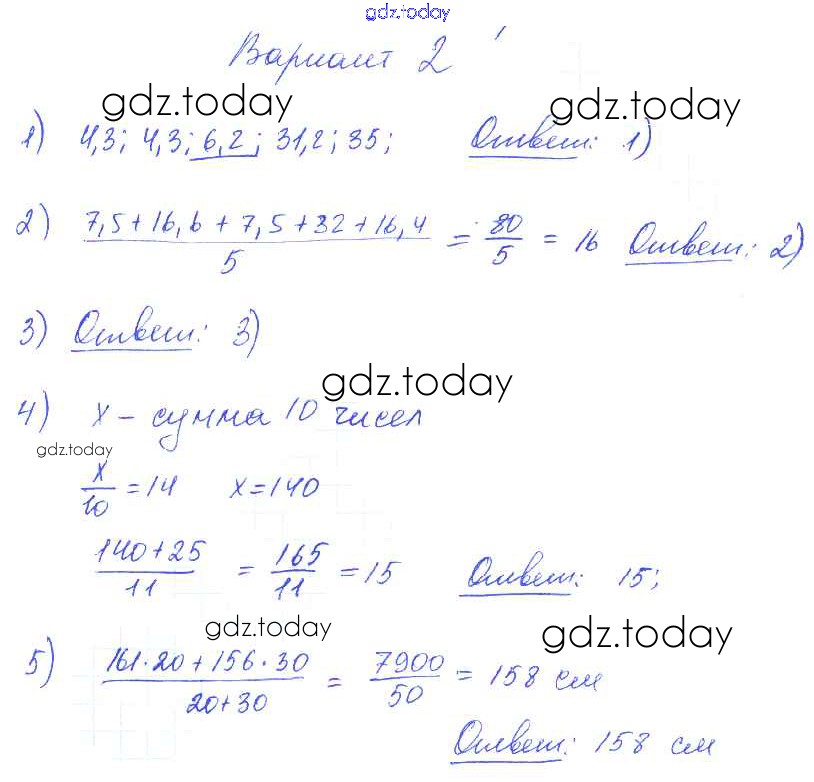 gdz.today
Вариант 2
gdz.today gdz.today
1) 4,3; 4,3; 6,2; 31,2; 35; Ответ: 1)
2) (7,5+16,6+7,5+32+16,4)/5 = 80/5 = 16 Ответ: 2)
3) Ответ: 3)
gdz.today
4) x – сумма 10 чисел
gdz.today
x/10 = 14 x=140
(140+25)/11 = 165/11 = 15 Ответ: 15;
gdz.today gdz.today
5) (161·20+156·30)/(20+30) = 7900/50 = 158 см
Ответ: 158 см